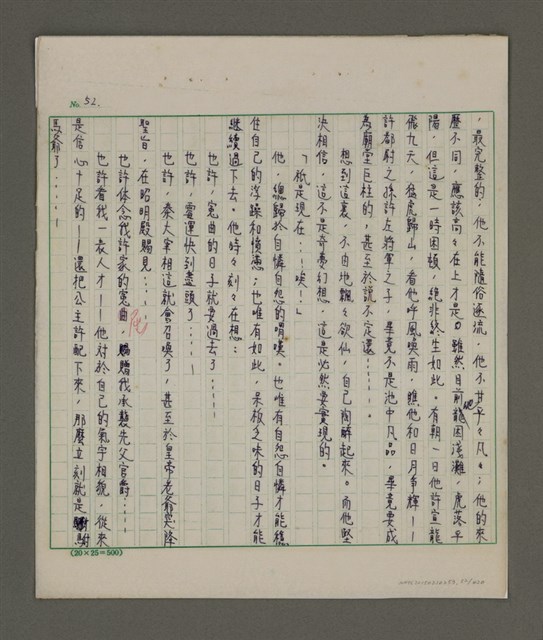 No. 52.
，最完整的，他不能隨俗逐流，他不甘平々凡々；他的來
歷不同，應該高々在上才是。雖然目前龍困淺灘，虎落平
陽，但這是一時困頓，絕非終生如此。有朝一日他許宣龍
飛九天，猛虎歸山，看他呼風喚雨，瞧他和日月爭輝！—
許都尉之孫許左將軍之子，畢竟不是池中凡品，畢竟要成
為廟堂巨柱的，甚至於說不定還……。
想到這裏，不由地飄々欲仙，自己陶醉起來。而他堅
決相信，這不是奇夢幻想，這是必然要實現的。
「祇是現在…！唉！」
他，總歸於自憐自怨的喟嘆。也唯有自怨自憐才能穩
住自己的浮躁和憤懣；也唯有如此，呆板乏味的日子才能
繼續過下去。他時々刻々在想：
也許，寃曲的日子就要過去了……
也許，霉運快到盡頭了……
也許，秦大宰相這就會召喚了，甚至於皇帝老爺突降
聖旨，在昭明殿賜見……
也許体念我許家的寃曲，賜我承襲先父官爵……
也許看我一表人才！—他對於自己的氣宇相貌，從來
是信心十足的！—還把公主許配下來，那麼立刻就是駙
馬爺了……！
(20×25=500)